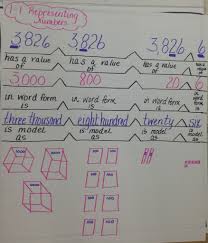 1-1 Representing Numbers
3,826 3,826 3,826 6
has a value of has a value of has a value of has a value of
3000 800 20 6
in word form is in word form is in word form is in word form is
three thousand eight hundred twenty six
is model as is model as is model as is model as
1000 100 100
1000 1000 100 100
100 100
100 100